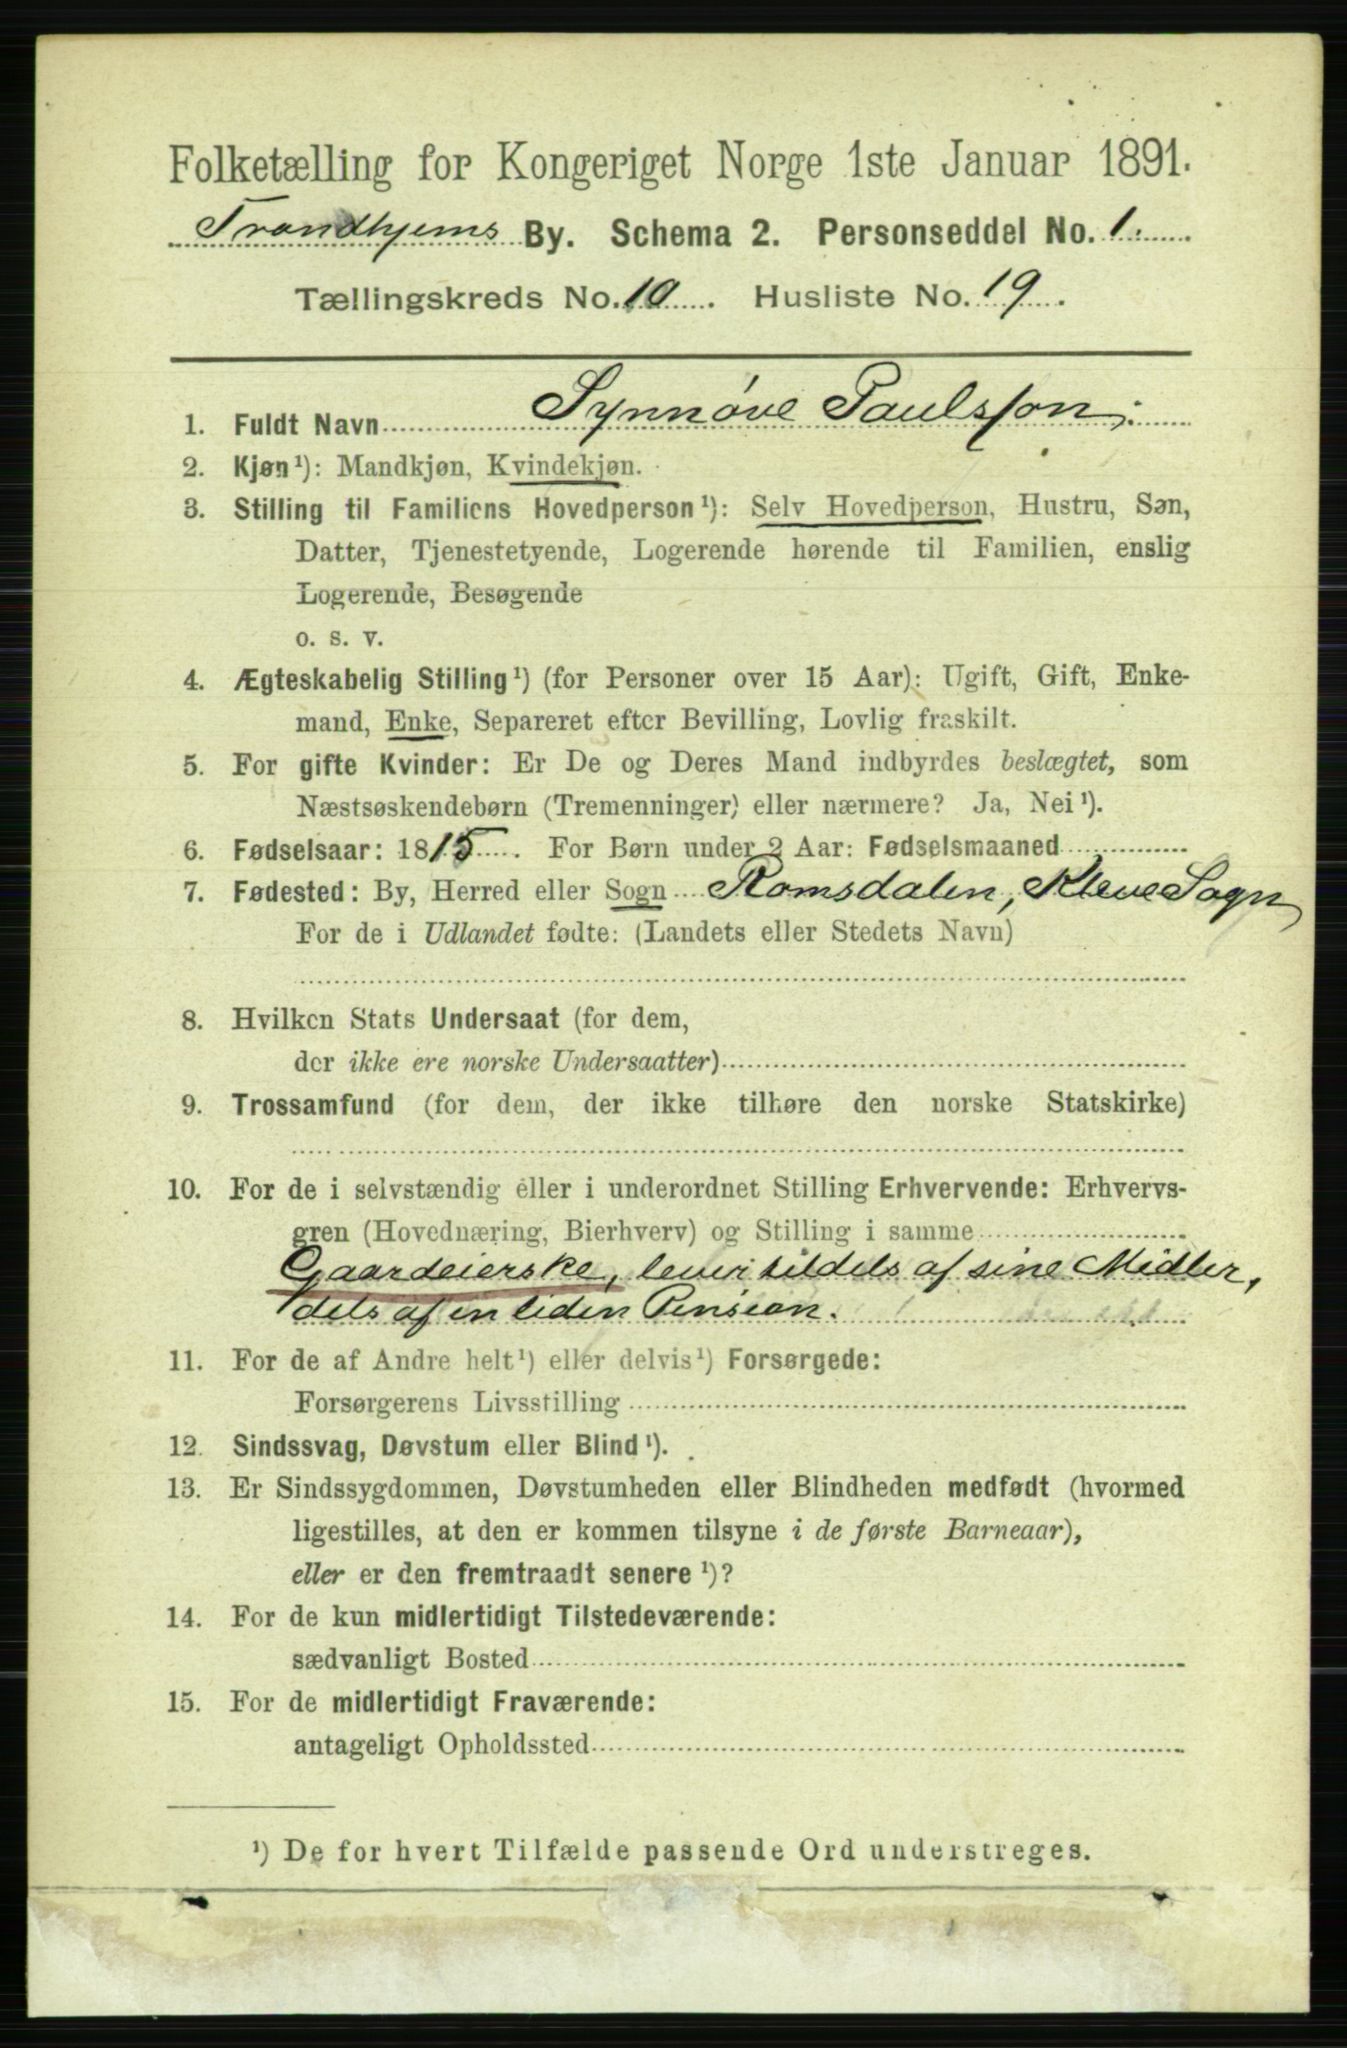 Folketælling for Kongeriget Norge 1ste Januar 1891.
Trondhjems By. Schema 2. Personseddel No. 1.
Tællingskreds No. 10. Husliste No. 19.
1. Fuldt Navn Synnøve Paulsson.
2. Kjøn¹): Mandkjøn, Kvindekjøn.
3. Stilling til Familiens Hovedperson¹): Selv Hovedperson, Hustru, Søn,
Datter, Tjenestetyende, Logerende hørende til Familien, enslig
Logerende, Besøgende
o. s. v.
4. Ægteskabelig Stilling¹) (for Personer over 15 Aar): Ugift, Gift, Enke-
mand, Enke, Separeret efter Bevilling, Lovlig fraskilt.
5. For gifte Kvinder: Er De og Deres Mand indbyrdes beslægtet, som
Næstsøskendebørn (Tremenninger) eller nærmere? Ja, Nei¹).
6. Fødselsaar: 1815. For Børn under 2 Aar: Fødselsmaaned
7. Fødested: By, Herred eller Sogn Romsdalen, Kleve Sogn
For de i Udlandet fødte: (Landets eller Stedets Navn)
8. Hvilken Stats Undersaat (for dem,
der ikke ere norske Undersaatter)
9. Trossamfund (for dem, der ikke tilhøre den norske Statskirke)
10. For de i selvstændig eller i underordnet Stilling Erhvervende: Erhvervs-
gren (Hovednæring, Bierhverv) og Stilling i samme
Gaardeierske, lever tildels af sine Midler,
dels af en liden Pension.
11. For de af Andre helt¹) eller delvis¹) Forsørgede:
Forsørgerens Livsstilling
12. Sindssvag, Døvstum eller Blind¹).
13. Er Sindssygdommen, Døvstumheden eller Blindheden medfødt (hvormed
ligestilles, at den er kommen tilsyne i de første Barneaar),
eller er den fremtraadt senere¹)?
14. For de kun midlertidigt Tilstedeværende:
sædvanligt Bosted
15. For de midlertidigt Fraværende:
antageligt Opholdssted
¹) De for hvert Tilfælde passende Ord understreges.